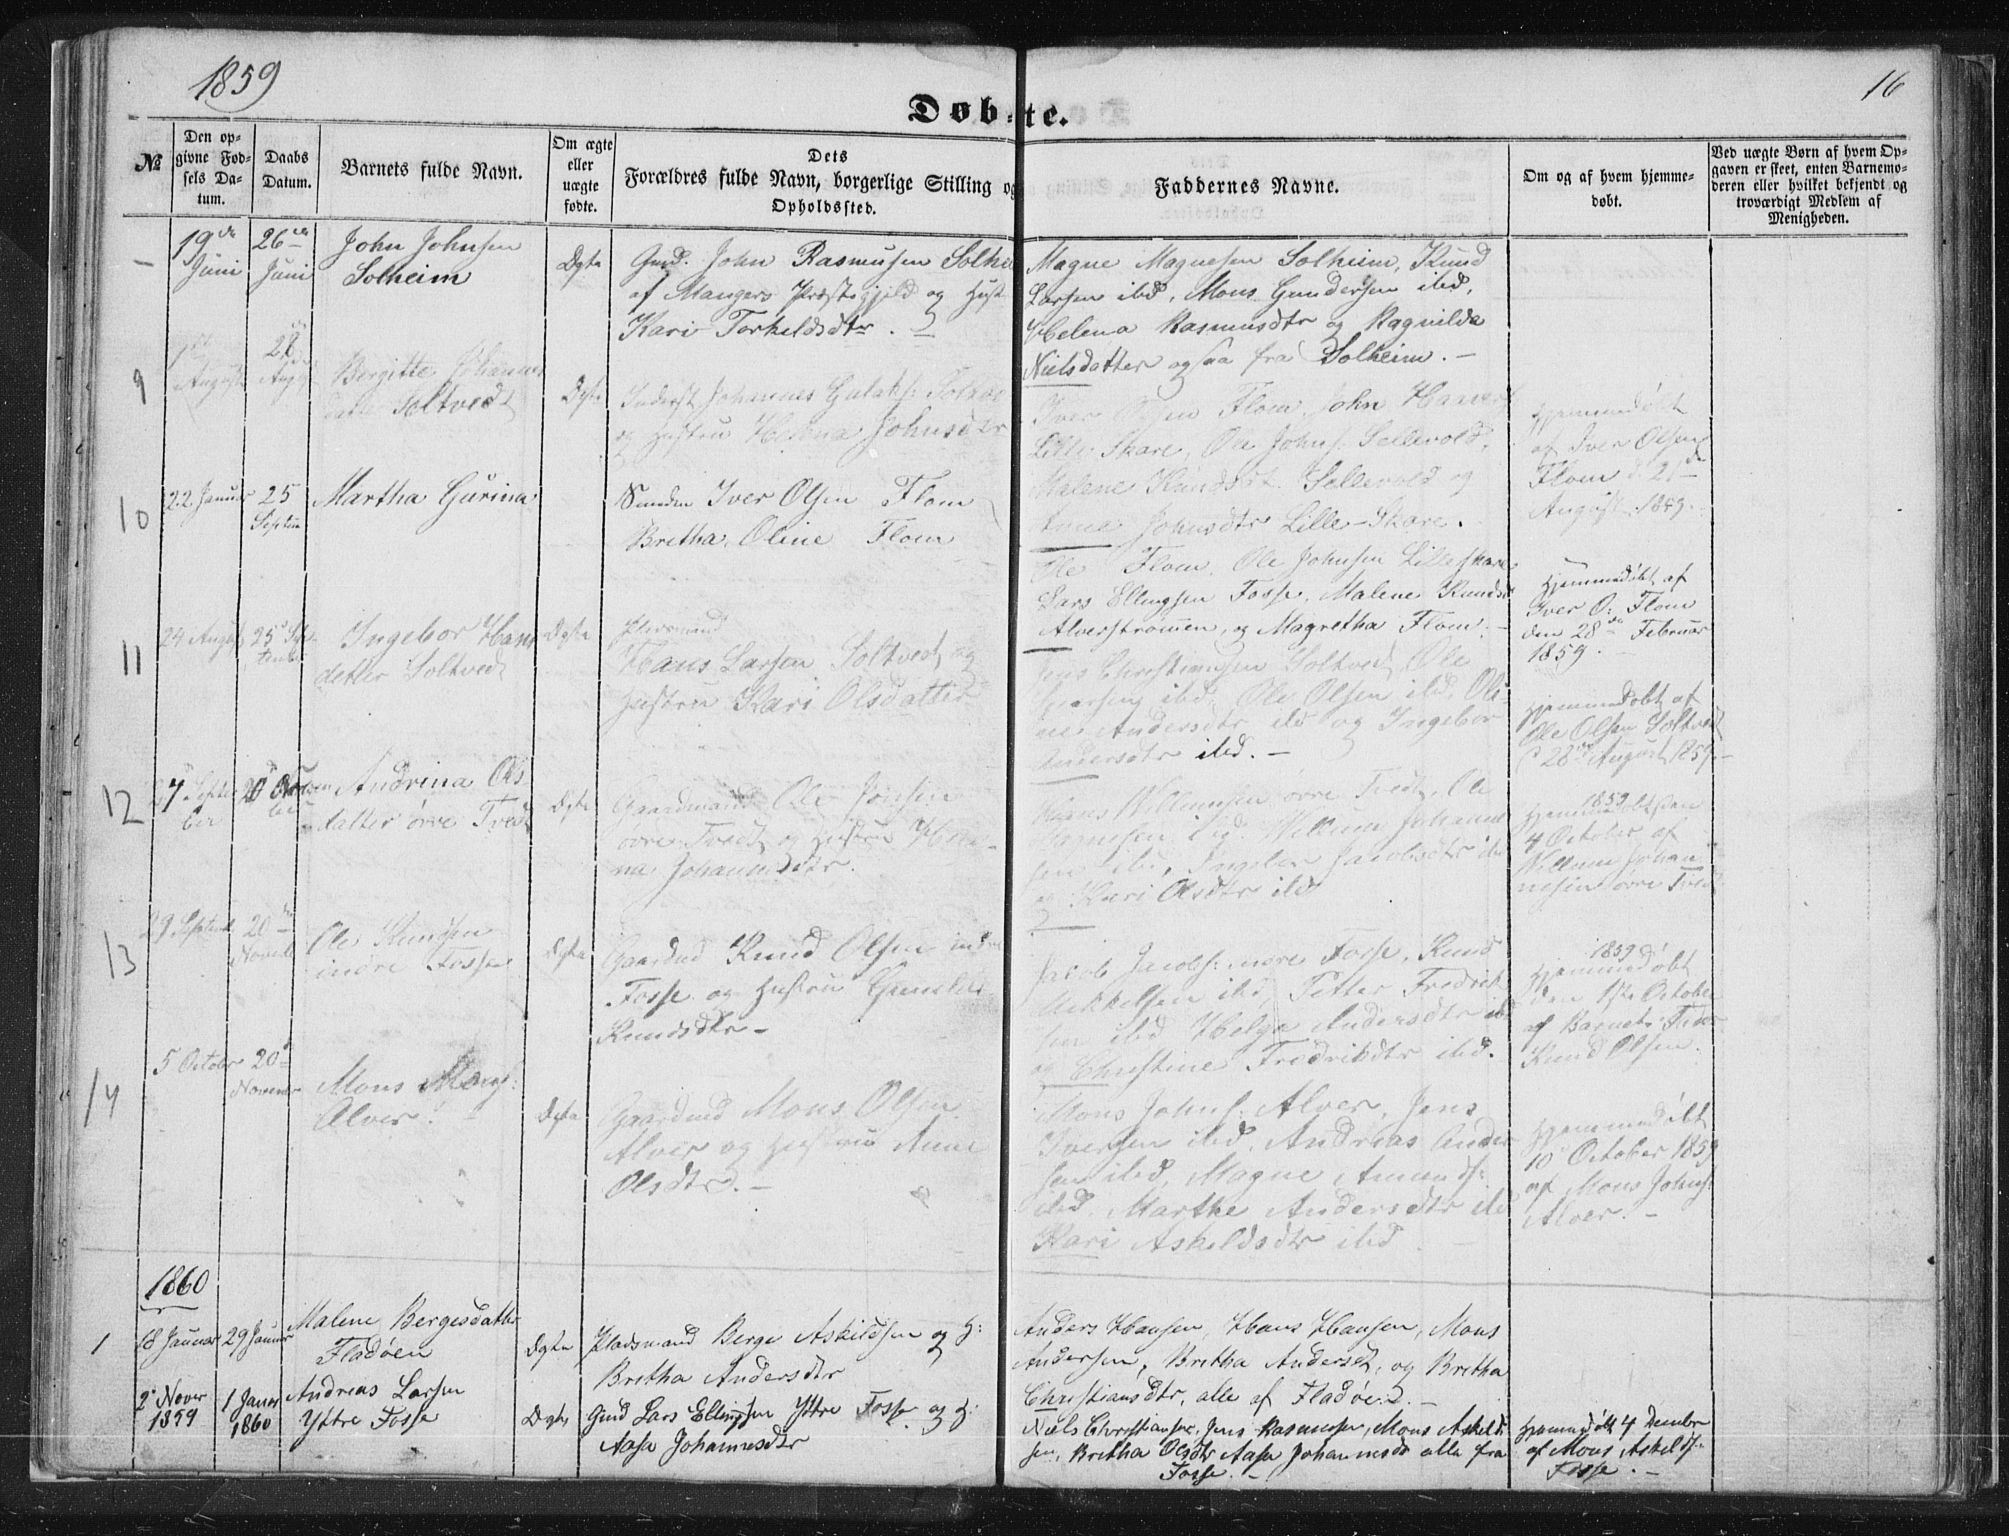 1859
16
Døbte.
№
Den opgivne Fødsels Datum.
Daabs Datum.
Barnets fulde Navn.
Om ægte eller uægte fødte.
Dets Forældres fulde Navn, borgerlige Stilling og Opholdssted.
Faddernes Navne.
Om og af hvem hjemmedøbt.
Ved uægte Børn af hvem Opgaven er skeet, enten Barnemoderen eller hvilket bekjendt og troværdigt Medlem af Menigheden.
19de Juni
26de Juni
John Johnsen
Solheim
Ægte
Gmd. John Rasmusen Solhe
af Mangers Præstegjeld og Hust
Kari Torkeldsdtr.
Magne Magnesen Solheim, Knud
Larsen ibd, Mons Gundersen ibd,
Helena Rasmusdtr og Ragnilda
Nielsdatter ogsaa fra Solheim. -
9
August
August
Bergitte Johannes
datter Soltvedt
Ægte
Johannes
og Hustru Helena Johnsdtr
Iver Flom, John
Lille Skare, Ole Johns. Sellevold,
Malene Sellevold og
Anna Johnsdtr Lille-Skare.
Hjemmedøbt
af Iver Olsen
Flom d. 21de
August 1859.
10
22 Januar
25 Septbr
Martha Gurina
Iver Olsen Flom
Bretha Oline Flom
Ole Flom, Ole Johnsen Lilleskare
Lars Ellingsen Fosse, Malene Knudsdt
Alverstrømen, og Magretha Flom. -
Hjemmedøbt af
Iver O. Flom
den 28de Februar
1859. -
11
24 August
25de Septembr
Ingebor Hans
datter Soltvedt
Ægte
Pladsmand
Hans Larsen Soltvedt og
Hustru Kari Olsdatter
Jens Christiansen Soltvedt, Ole
ibd, Ole Olsen ibd, Oli-
ne Andersdtr ibd og Ingebor
Andersdtr ibd. -
Hjemmedøbt af
Ole Olsen Soltvedt
d 28de August 1859. -
12
27 Septem
ber
20
Andrina Ols
datter øvre Tvedt
Ægte
Gaardmand Ole Jonsen
øvre Tvedt og Hustru Han-
na Johannsdtr.
Hans Willumsen øvre Tvedt, Ole
Hansen ibd, Willum Johanne
sen ibd, Ingebor Jacobsdtr ibd
og Kari Olsdtr ibd
1859
Hjemmedøbt den
4 October af
Willum Johan
nesen øvre Tvedt
13
29 September
20de
Novemb
Ole Knudsen
indre Fosse
Ægte
Gaardmd Knud Olsen indre
Fosse og Hustru
Knudsdtr -
Jacob Jacobs: indre Fosse, Knud
Mikkelsen ibd, Petter Fredrik
sen ibd Helga Andersdtr ibd
og Christine Fredriksdtr ibd.
1859
Hjemmedøbt
den 1ste October
af Barnets Fader
Knud Olsen.
14
5 October
20de
November
Mons Mons:
Alver.
Ægte
Gaardmd Mons Olsen
Alver og Hustru Anne
Olsdtr. -
Mons Johns: Alver, Jens
Iversen ibd, Andreas Ander
sen ibd, Magne Amunds:
ibd, Marthe Andersdtr ibd
Kari Askeldsdtr ibd
Hjemmedøbt
10 October 1859
af Mons Johns:
Alver. -
1860
1
18 Januar
29 Januar
Malene Bergesdatter
Fladøen
Ægte
Pladsmand Berge Askildsen og H:
Bretha Andersdtr
Anders Hansen, Hans Hansen, Mons
Andersen, Bretha Andersdt, og Bretha
Christiansdtr, alle af Fladøen. -
2 Nover
1859
1 Januar
1860
Andreas Larsen
Yttre Fosse
Ægte
Gmd Lars Ellingsen Yttre Fosse og H:
Aasa Johannesdtr
Niels Christiansen, Jens Rasmusen, Mons Askild
sen, Bretha Olsdtr Aasa Johannesd alle fra
Fosse. -
Hjemmedøbt 4 Dember
af Mons Askilds:
Fosse. -